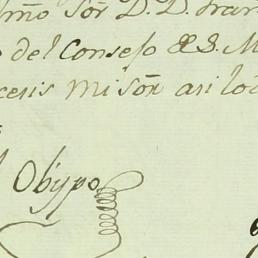 mo Sor D. D. Fran
del Consejo de S. M
cesis mi Sor. asi lo
Obispo